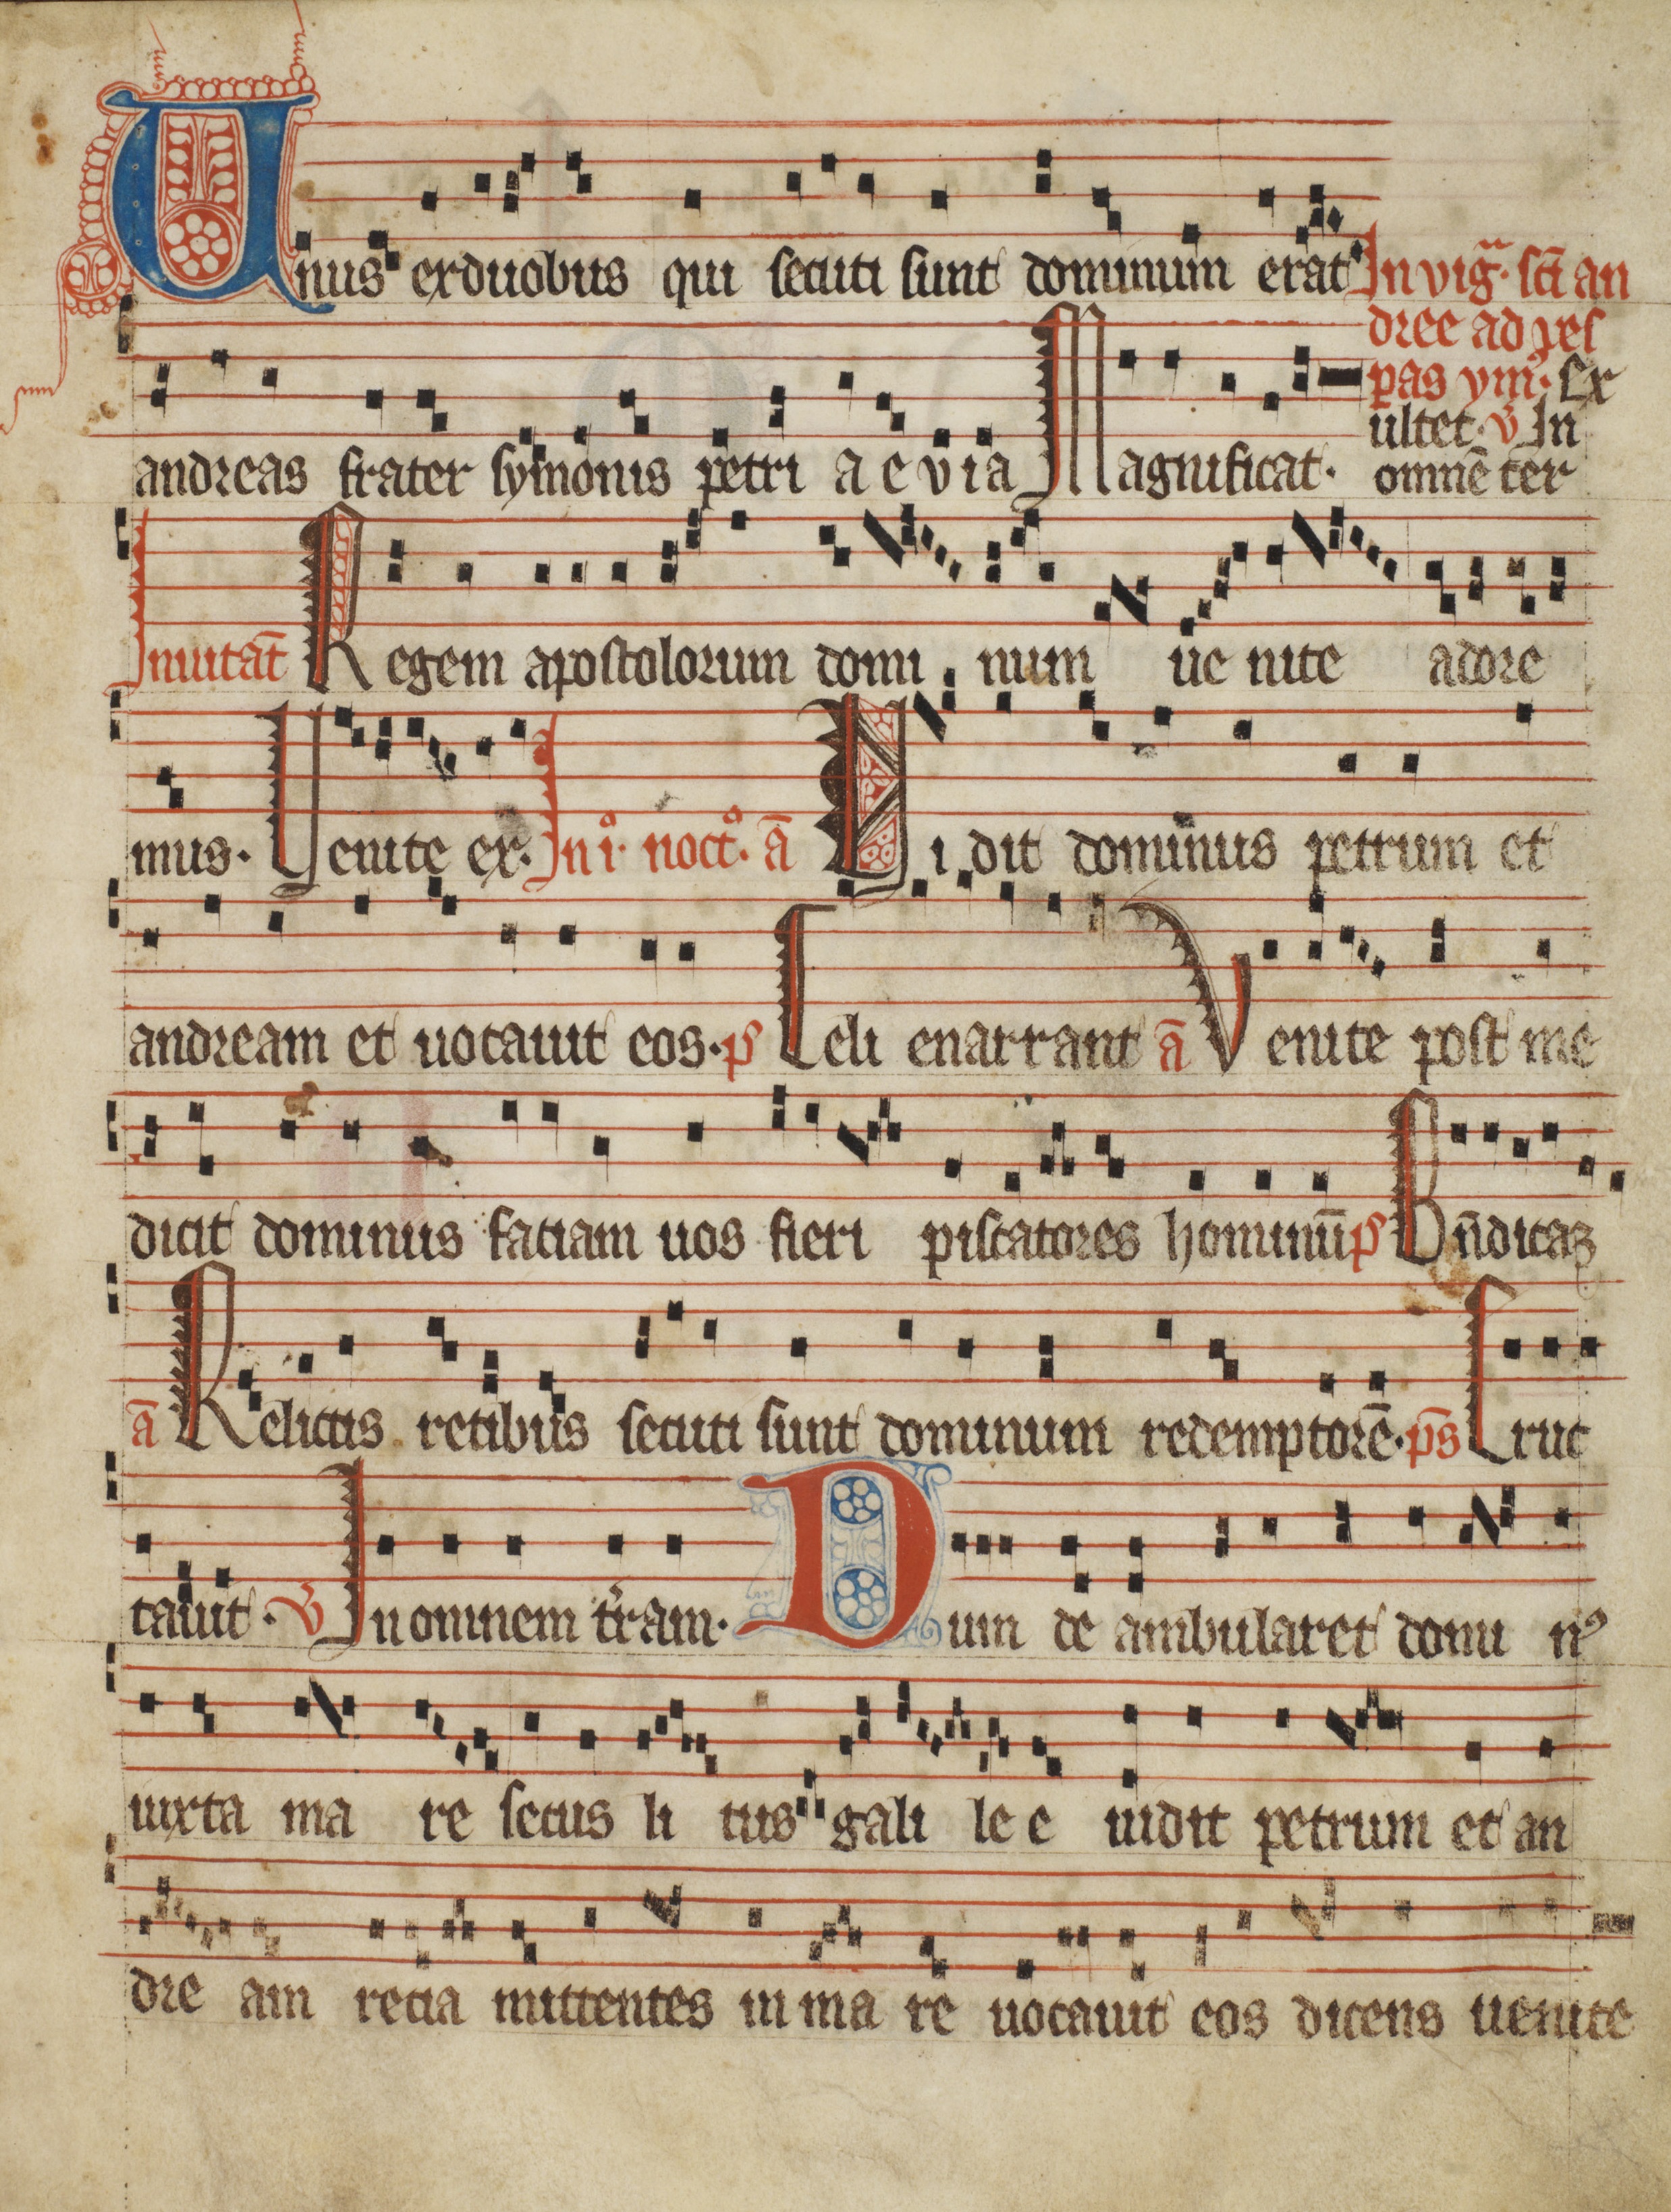 Unus ex duobus qui secuti sunt dominum erat In vigͣ. sc̄i an
dree ad ves
pas ymͣ. Ex
ultet. V In
omnē ter
andreas frater symonis petri a e v i a Magnificat.
Inuitat̄ Regem apostolorum domi num ue nite adore
mus. Venite ex. In i̊. noct̊. a̅ Vi dit dominus petrum et
andream et uocauit eos. p̄s Celi enarrant a̅ Venite post me
dicit dominus faciam uos fieri piscatores hominū p̄s Bn̄dicaꝫ
a̅ Relictis retibus secuti sunt dominum redemptorē. p̄s Eruc
tauit. V In omnem t̄ram. Dum de ambularet domi nꝰ
iuxta ma re secus li tus gali le e uidit petrum et an
dre am retia mittentes in ma re uocauit eos dicens uenite